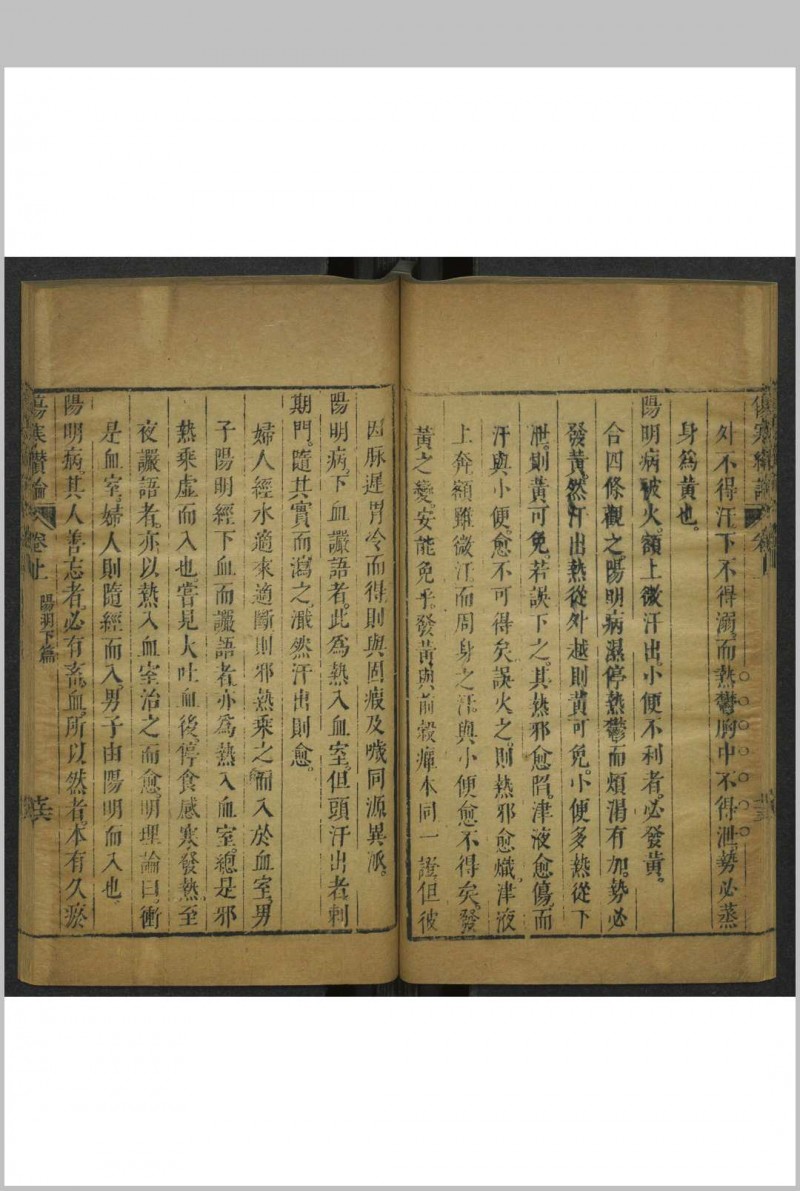 外不得汗下不得溺。而熱鬱胸中不得泄。勢必蒸
身爲黃也。
陽明病被火。額上微汗出。小便不利者。必發黃。
合四條觀之。陽明病濕停熱鬱而煩渴有加。勢必
發黃。然汗出熱從外越則黃可免。小便多熱從下
泄。則黃可免。若誤下之。其熱邪愈陷。津液愈傷。而
汗與小便。愈不可得矣。誤火之。則熱邪愈熾。津液
上奔。額雖微汗而周身之汗。與小便愈不得矣。發
黃之變。安能免乎。發黃與前穀癉本同一證。但彼
因脉遲胃冷而得則與固瘕及噦同源異派。
陽明病。下血譫語者。此爲熱入血室。但頭汗出者。刺
期門。隨其實而瀉之。濈然汗出則愈。
婦人經水適來適斷則邪熱乘之而入於血室。男
子陽明經下血而譫語者。亦爲熱入血室。總是邪
熱乘虛而入也。嘗見大吐血後。停食感寒發熱至
夜譫語者。亦以熱入血室治之而愈。明理論曰。衝
是血室。婦人則隨經而入。男子由陽明而入也。
陽明病。其人善忘者。必有畜血。所以然者。本有久瘀
傷寒纘論 卷上 陽明下篇